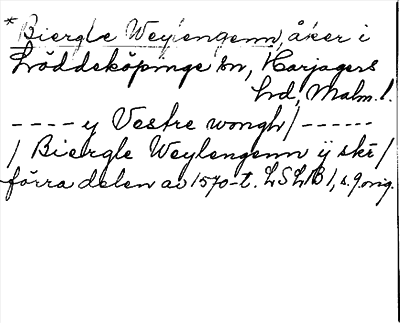 * Biergle Weylengenn, åker i
Löddeköpinge sn, Harjagers
hd, Malm. l.
---- y Vestre wongh / ------
/ Biergle Weylengenn ÿ skr /
förra delen av 1570-t. LSLB 1, s. 9 orig.